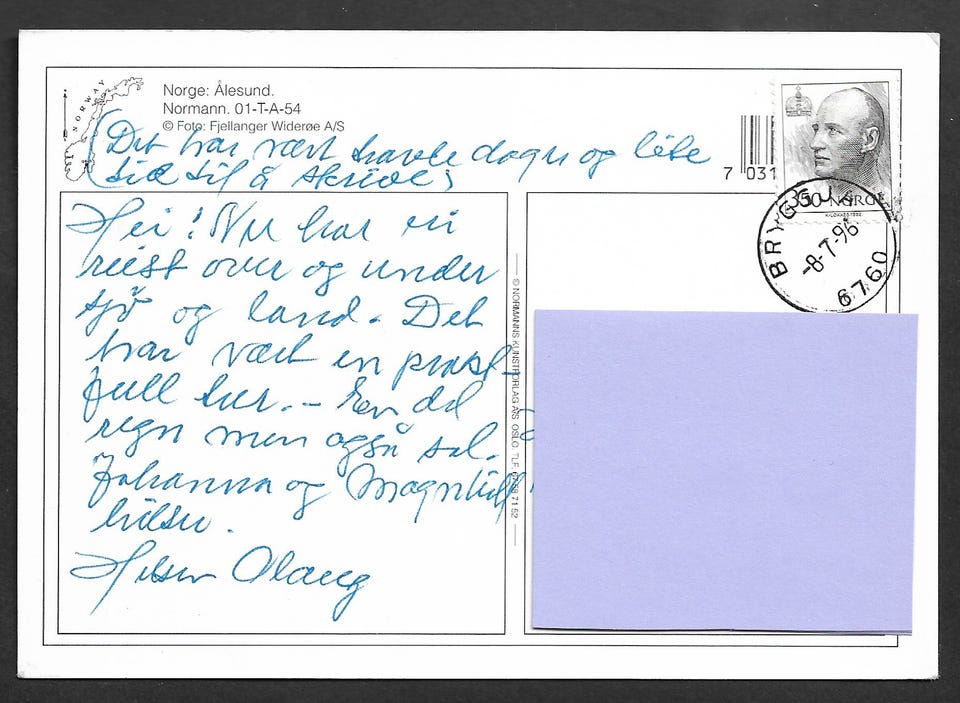 NORWAY
Norge: Ålesund.
Normann. 01-T-A-54
© Foto: Fjellanger Widerøe A/S
(Det har vært travle dager og lite
tid til å skrive)
7 031
350 NORGE
BRYGGJA
-8-7-96
6760
Hei! Nu har vi
reist over og under
sjø og land. Det
har vært en prakt-
full tur. - En del
regn men også sol.
Johanna og Magnhild
hilser.
Hilsen Olaug
© NORMANNS KUNSTFORLAG A/S, OSLO. TLF. 71 52